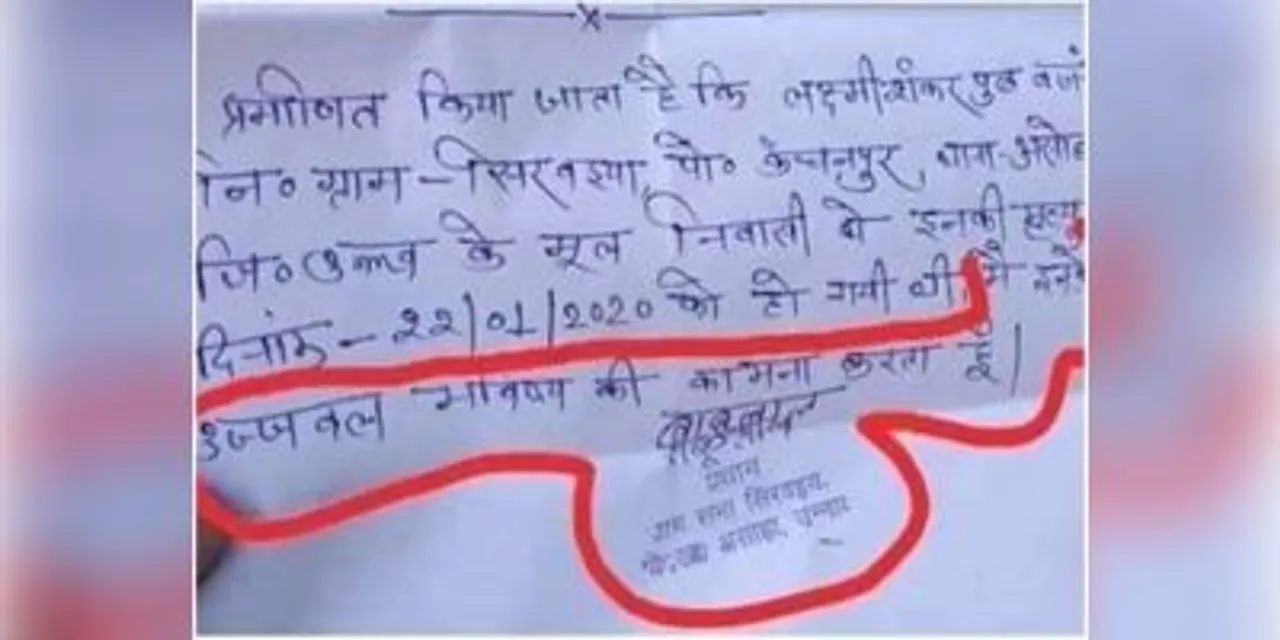 प्रमाणित किया जाता है कि लक्ष्मीशंकर पुत्र
नि० ग्राम - सिरवइया, पो० कंचनपुर, थाना-
जि० उन्नाव के मूल निवासी थे इनकी मृत्यु
दिनांक - 22/01/2020 को हो गयी थी, मै इनके
उज्जवल भविष्य की कामना करता हूँ।
प्रधान
ग्राम सभा सिरवइया,
उन्नाव